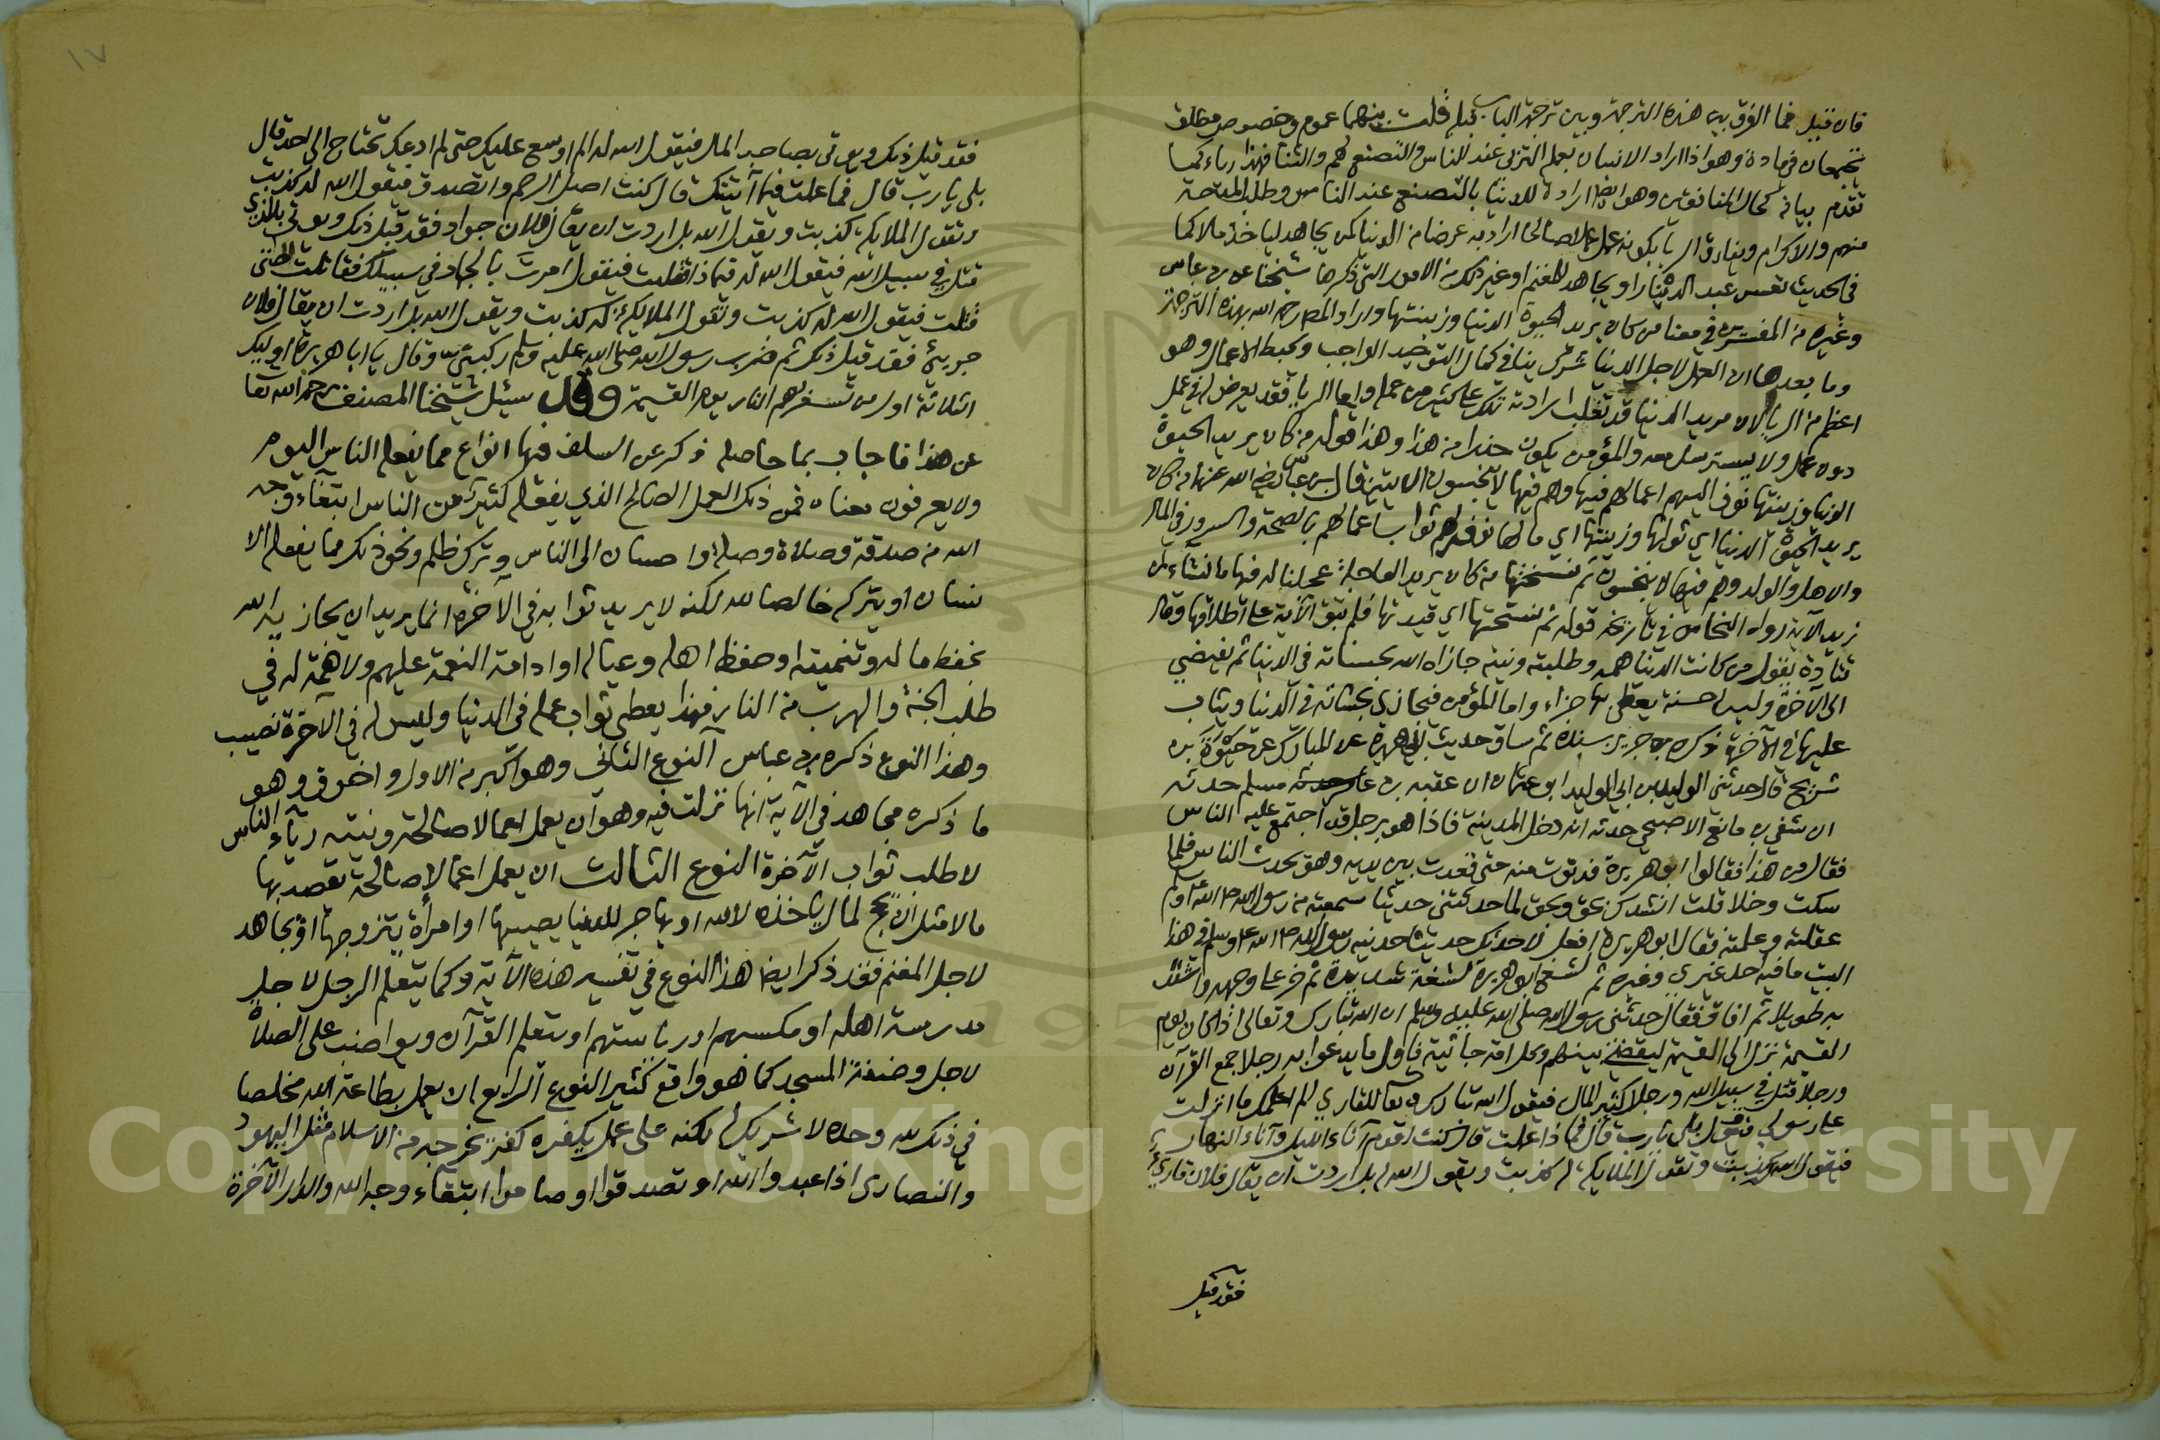 فان قيل فما الفرق بين هذه الترجمة وبين ترجمة الباب قبله قلت بينهما عموم وخصوص مطلق
يجتمعان في مادة وهو اذا اراد الانسان بعمله التزين عند الناس والتصنع لهم والثنا فهذا رياء كما
تقدم بيانه كحال المنافقين وهو ايضا ارادة للدنيا بالتصنع عند الناس وطلب المدحة
منهم والاكرام ويفارق الريا بكونه عمل عملا صالحا اراد به عرضا من الدنيا كمن يجاهد لياخذ مالا كما
في الحديث تعس عبد الدينار او يجاهد للمغنم او غير ذلك من الامور التي ذكرها شيخنا عن بن عباس
وغيره من المفسرين في معنا من كان يريد الحيوة الدنيا وزينتها واراد المص رحمه الله بهذه الترجمة
وما بعدها ان العمل لاجل الدنيا شرك ينافي كمال التوحيد الواجب ويحبط الاعمال وهو
اعظم من الريا لان مريد الدنيا قد تغلب ارادته تلك على كثير من عمله واما الريا فقد يعرض له في عمل
دون عمل ولا يسترسل معه والمؤمن يكون حذرا من هذا وهذا قوله من كان يريد الحيوة
الدنيا وزينتها نوف اليهم اعمالهم فيها وهم فيها لا يبخسون الايتين قال بن عباس رضي الله عنهما من كان
يريد الحيوة الدنيا اي ثوابها وزينتها اي مالها نوفر لهم ثواب اعمالهم بالصحة والسرور في المال
والاهل والولد وهم فيها لا يبخسون ثم نسختها من كان يريد العاجلة عجلنا له فيها ما نشاء لمن
نريد الاية رواه النحاس في ناسخه قوله ثم نسختها اي قيدتها فلم تبق الآية على اطلاقها وقال
قتادة يقول من كانت الدنيا همه وطلبته ونيته جازاه الله بحسناته في الدنيا ثم يفضي
الى الآخرة وليس له حسنة يعطى بها جزاء واما المؤمن فيجازى بحسناته في الدنيا ويثاب
عليها في الآخرة ذكره بن جرير بسنده ثم ساق حديث ابي هريرة عن المبارك عن حيوة بن
شريح قال حدثني الوليد بن ابي الوليد ابو عثمان ان عقبه بن مسلم حدثه
ان شفي بن ماتع الاصبحي حدثه انه دخل المدينة فاذا هو برجل قد اجتمع عليه الناس
فقال من هذا فقالوا ابو هريرة فدنوت منه حتى قعدت بين يديه وهو يحدث الناس فلما
سكت وخلا قلت انشدك بحق وبحق لما حدثتني حديثا سمعته من رسول الله
عقلته وعلمته فقال ابو هريرة افعل لاحدثنك حديثا حدثنيه رسول الله وسلم في هذا
البيت ما فيه احد غيري وغيره ثم نشغ ابو هريرة نشغة شديدة ثم خر على وجهه واشتد
به طويلا ثم افاق فقال حدثني رسول الله صلى الله عليه وسلم ان الله تبارك وتعالى اذا كان يوم
القيمة نزل الى القيمة ليقضي بينهم وكل امة جاثية فاول من يدعوا به رجلا جمع القرآن
ورجلا قتل في سبيل الله ورجلا كثير المال فيقول الله تبارك وتعا للقاري الم اعلمك ما انزلت
على رسولي فيقول بلى يارب قال فما ذا عملت قال كنت اقوم آناء الليل وآناء النهار
فيقول الله كذبت وتقول الملايكة له كذبت ويقول الله له بل اردت ان يقال فلان قاري
فقد قيل
١٧
فقد قيل ذلك ويوتى بصاحب المال فيقول الله له الم اوسع عليك حتى لم ادعك تحتاج الى احد قال
بلى يا رب قال فما عملت فيما آتيتك قال كنت اصل الرحم واتصدق فيقول الله له كذبت
وتقول الملايكة كذبت ويقول الله بل اردت ان يقال فلان جواد فقد قيل ذلك ويوتى بالذي
قتل في سبيل الله فيقول الله له فيما ذا قتلت فيقول امرت بالجهاد في سبيلك فقاتلت حتى
قتلت فيقول الله له كذبت وتقول الملايكة له كذبت ويقول الله بل اردت ان يقال فلان
جريئ فقد قيل ذلك ثم ضرب رسول الله صلى الله عليه وسلم ركبتي وقال يا ابا هريرة اوليك
الثلاثة اول من تسعر بهم النار يوم القيمة وقد سئل شيخنا المصنف رحمه الله تعا
عن هذا فاجاب بما حاصله ذكر عن السلف فيها انواع مما يفعله الناس اليوم
ولا يعرفون معناه فمن ذلك العمل الصالح الذي يفعله كثير من الناس ابتغاء وجه
الله من صدقة وصلاة وصلة واحسان الى الناس وترك ظلم ونحو ذلك مما يفعله الا
نسان او يتركه خالصا لله لكنه لا يريد ثوابه في الآخرة انما يريد ان يجازيه الله
بحفظ ماله وتنميته او حفظ اهله وعياله او ادامة النعمة عليهم ولا همة له في
طلب الجنة والهرب من النار فهذا يعطى ثواب عمله في الدنيا وليس له في الآخرة نصيب
وهذا النوع ذكره بن عباس النوع الثاني وهو اكبر من الاول واخوف وهو
ما ذكره مجاهد في الآية انها نزلت فيه وهو ان يعمل اعمالا صالحة ونيته رياء الناس
لا طلب ثواب الآخرة النوع الثالث ان يعمل اعمالا صالحة يقصد بها
مالا مثل ان يحج لمال ياخذه لا لله او يهاجر للدنيا يصيبها او امرأة يتزوجها او يجاهد
لاجل المغنم فقد ذكر ايضا هذا النوع في تفسير هذه الآية وكما يتعلم الرجل لاجل
مدرسة اهله او مكسبهم او رياستهم او يتعلم القرآن ويواضب على الصلاة
لاجل وضيفة المسجد كما هو واقع كثير النوع الرابع ان يعمل بطاعة الله مخلصا
في ذلك لله وحده لا شريك له لكنه على عمل يكفره كفر يخرجه من الاسلام مثل اليهود
والنصارى اذا عبدوا الله او تصدقوا او صاموا ابتغاء وجه الله والدار الآخرة
Copyright © King Saud University
1957